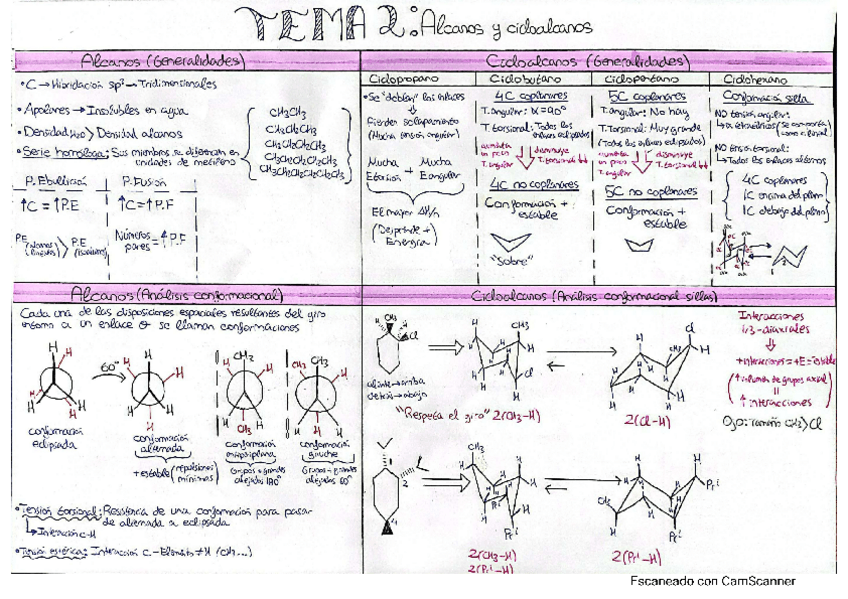 TEMA 2: Alcanos y cicloalcanos
Alcanos (Generalidades)
• C → Hibridación sp³ → Tridimensionales
• Apolares → Insolubles en agua
• Densidad H₂O > Densidad alcanos
• Serie homóloga: Sus miembros se diferencian en
unidades de metileno
CH₃CH₃
CH₃CH₂CH₃
CH₃CH₂CH₂CH₃
CH₃CH₂CH₂CH₂CH₃
P. Ebullición
↑C = ↑P.E
P.E > P.E
P. Fusión
↑C = ↑P.F
Números pares = ↑P.F
Cicloalcanos (Generalidades)
Ciclopropano
• Se "doblan" los enlaces
Pierden solapamiento
(Mucha tensión angular)
Mucha + Mucha
Etorsión Eangular
El mayor
(Desprende +
Energía)
Ciclobutano
4C coplanares
T. angular: α=90°
T. torsional: Todos los
enlaces eclipsados
aumenta un poco T. angular
disminuye T. torsional ↓↓
4C no coplanares
Conformación +
estable
"Sobre"
Ciclopentano
5C coplanares
T. angular: No hay
T. Torsional: Muy grande
(Todos los enlaces eclipsados)
aumenta un poco T. angular
disminuye T. torsional ↓↓
5C no coplanares
Conformación +
estable
Ciclohexano
Conformación silla
NO tensión angular:
NO tensión torsional:
→ Todos los enlaces alternos
4C coplanares
1C encima del plano
1C debajo del plano
Alcanos (Análisis conformacional)
Cada una de las disposiciones espaciales resultantes del giro
entorno a un enlace σ se llaman conformaciones
60°
conformación
eclipsada
conformación
alternada
+ estable (repulsiones mínimas)
CH₃
CH₃
conformación
Grupos + grandes
alejados 180°
CH₃
CH₃
conformación
gauche
Grupos + grandes
alejados 60°
• Tensión torsional: Resistencia de una conformación para pasar
de alternada a eclipsada
→ Interacción C-H
• Tensión estérica: Interacción C - Elemento ≠ H (CH₃...)
Cicloalcanos (Análisis conformacional sillas)
CH₃
Cl
delante → arriba
detrás → abajo
"Respeta el giro" 2(CH₃-H)
CH₃
Cl
Cl
2(Cl-H)
Interacciones
1,3-diaxiales
+ interacciones = +E = -estable
(↑ volumen de grupos axial
=
↑ interacciones)
Ojo: Tamaño CH₃ > Cl
CH₃
Prⁱ
2(CH₃-H)
2(Prⁱ-H)
CH₃
Prⁱ
2(Prⁱ-H)
Escaneado con CamScanner